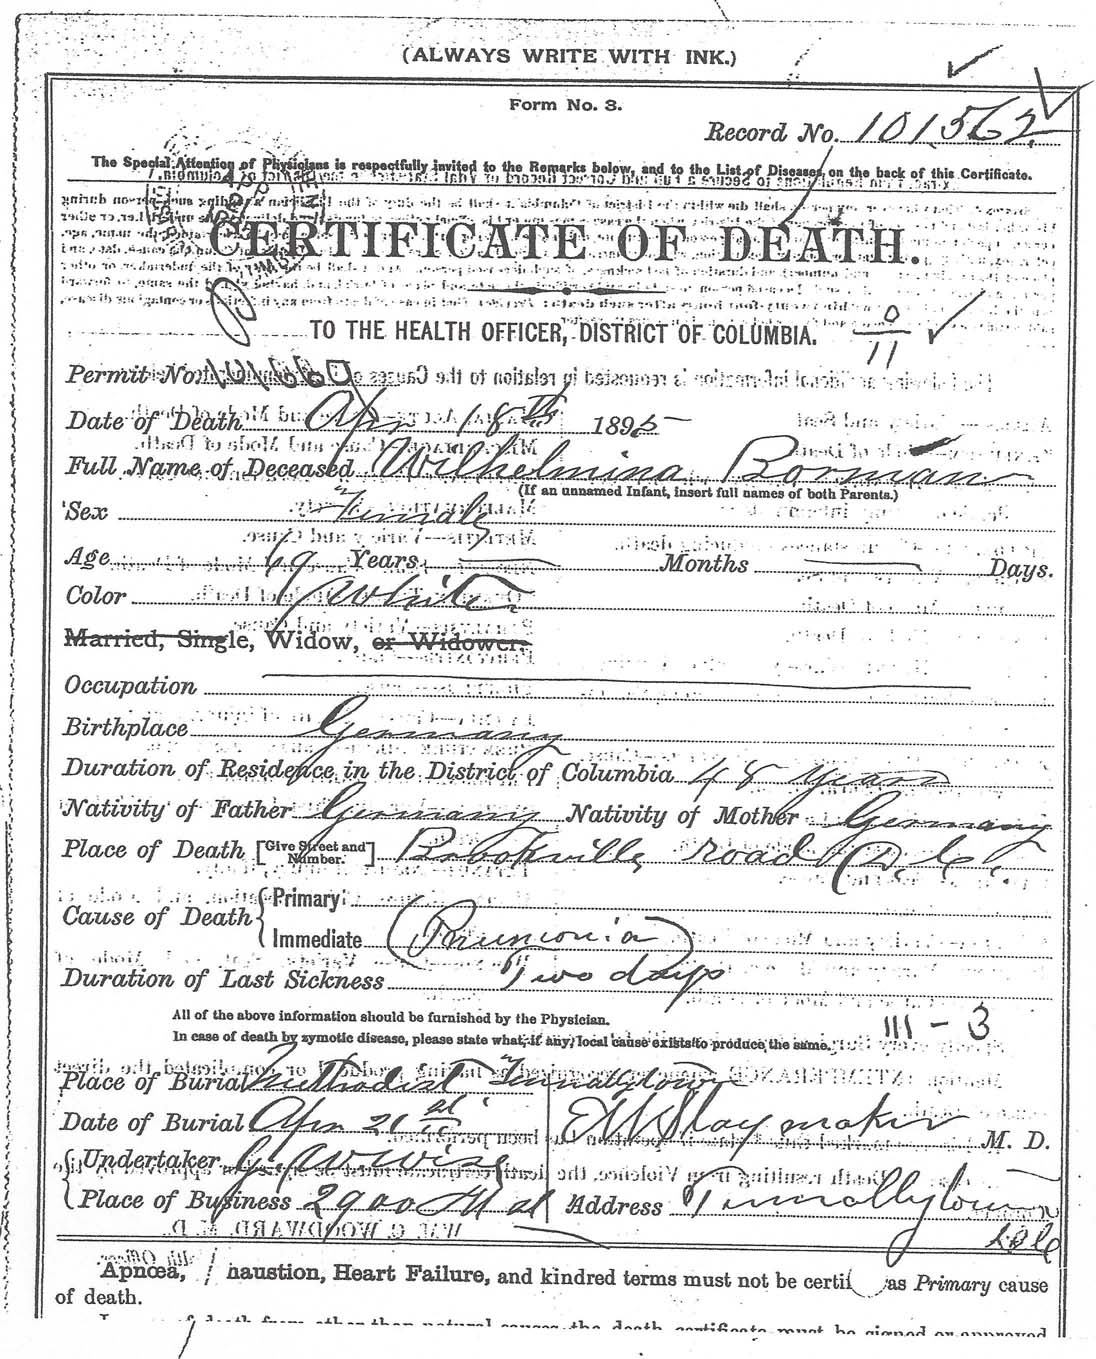 (ALWAYS WRITE WITH INK.)
Form No. 3.
Record No. 101,562
The Special Attention of Physicians is respectfully invited to the Remarks below, and to the List of Diseases on the back of this Certificate.
CERTIFICATE OF DEATH.
TO THE HEALTH OFFICER, DISTRICT OF COLUMBIA.
0
11
Permit No.
Date of Death Apr 18th 1895
Full Name of Deceased Wilhelmina Borman
(If an unnamed Infant, insert full names of both Parents.)
Sex Female
Age 69 Years, Months Days.
Color White
Married, Single, Widow, or Widower.
Occupation
Birthplace Germany
Duration of Residence in the District of Columbia 48 years
Nativity of Father Germany Nativity of Mother Germany
Place of Death [Give Street and Number.] Brookville road (D.C.
Cause of Death { Primary
Immediate (Pneumonia)
Duration of Last Sickness Two days
All of the above information should be furnished by the Physician.
In case of death by zymotic disease, please state what, if any, local cause exists to produce the same.
III - 3
Place of Burial Methodist Tennallytown
Date of Burial Apr 21st Slaymaker M. D.
Undertaker Wise
Place of Business 2900 M st Address Tennallytown
D.C.
Apnœa, haustion, Heart Failure, and kindred terms must not be certi as Primary cause
of death.
death from other than natural causes, the death certificate must be signed or approved